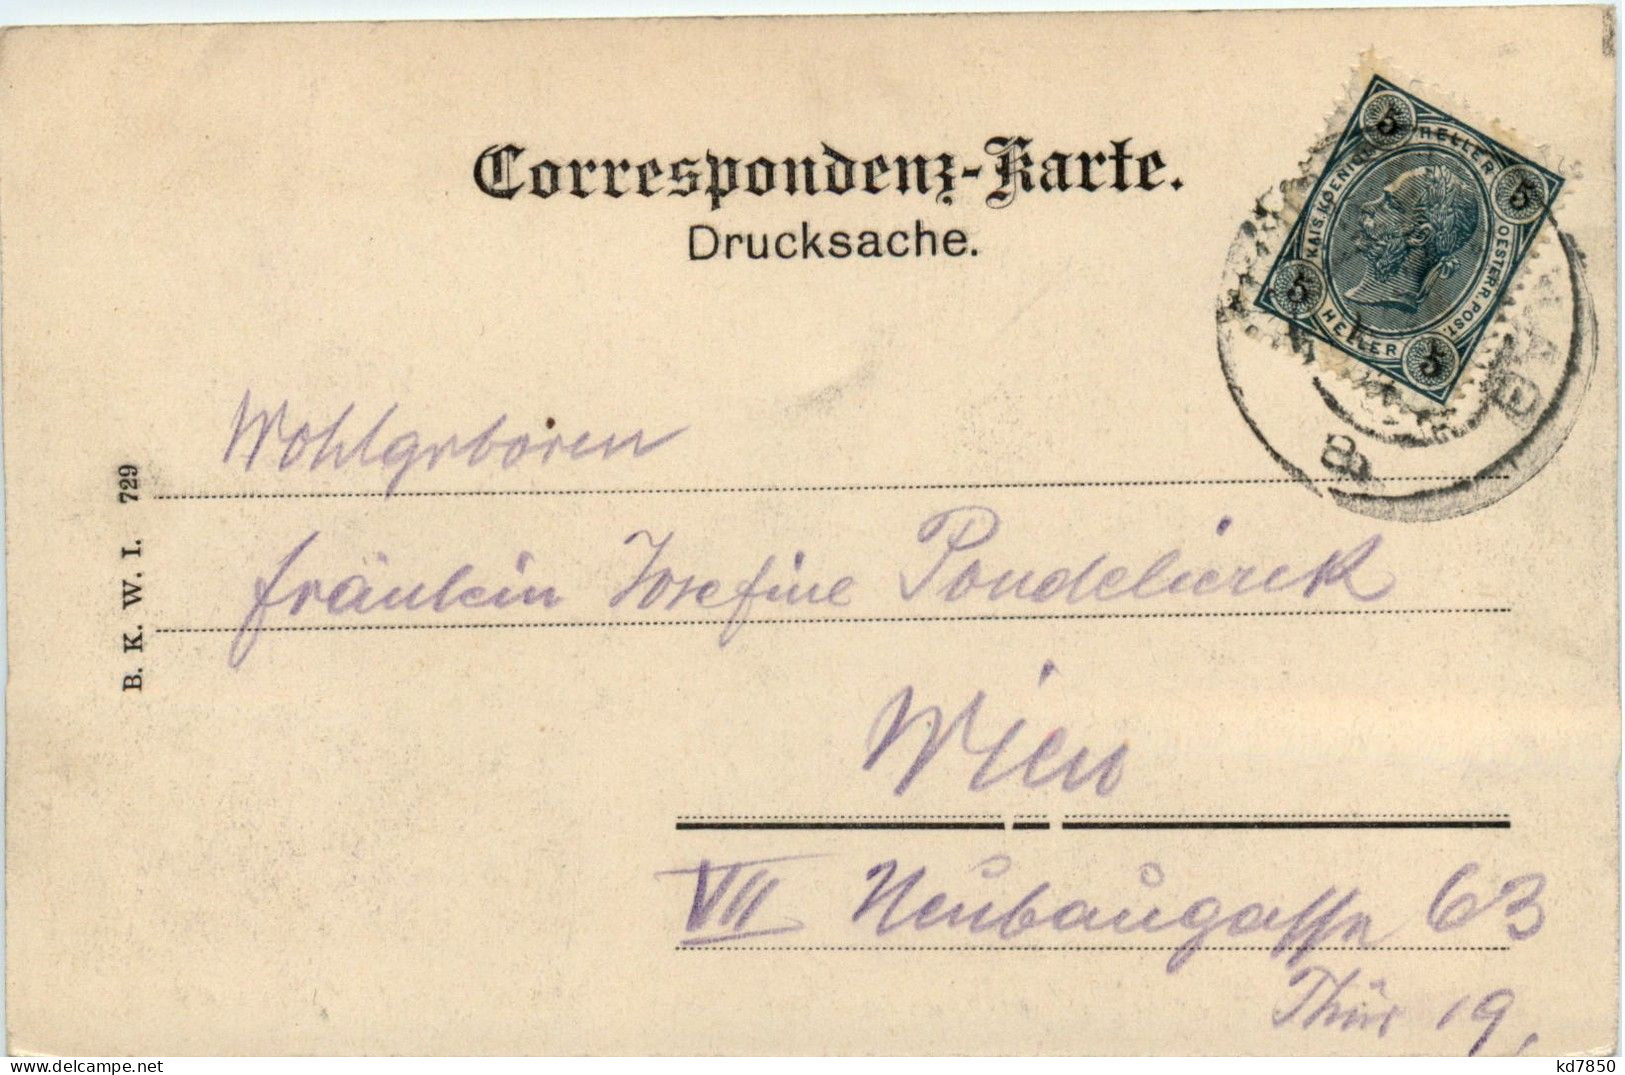 Correspondenz-Karte.
Drucksache.
5 HELLER 5
KAIS. KOENIGL. OESTERR. POST.
5 HELLER 5
Wohlgeboren
Fräulein Josefine
Wien
VII Neubaugasse 63
Thür 19.
B. K. W. I. 729
www.delcampe.net
kd7850